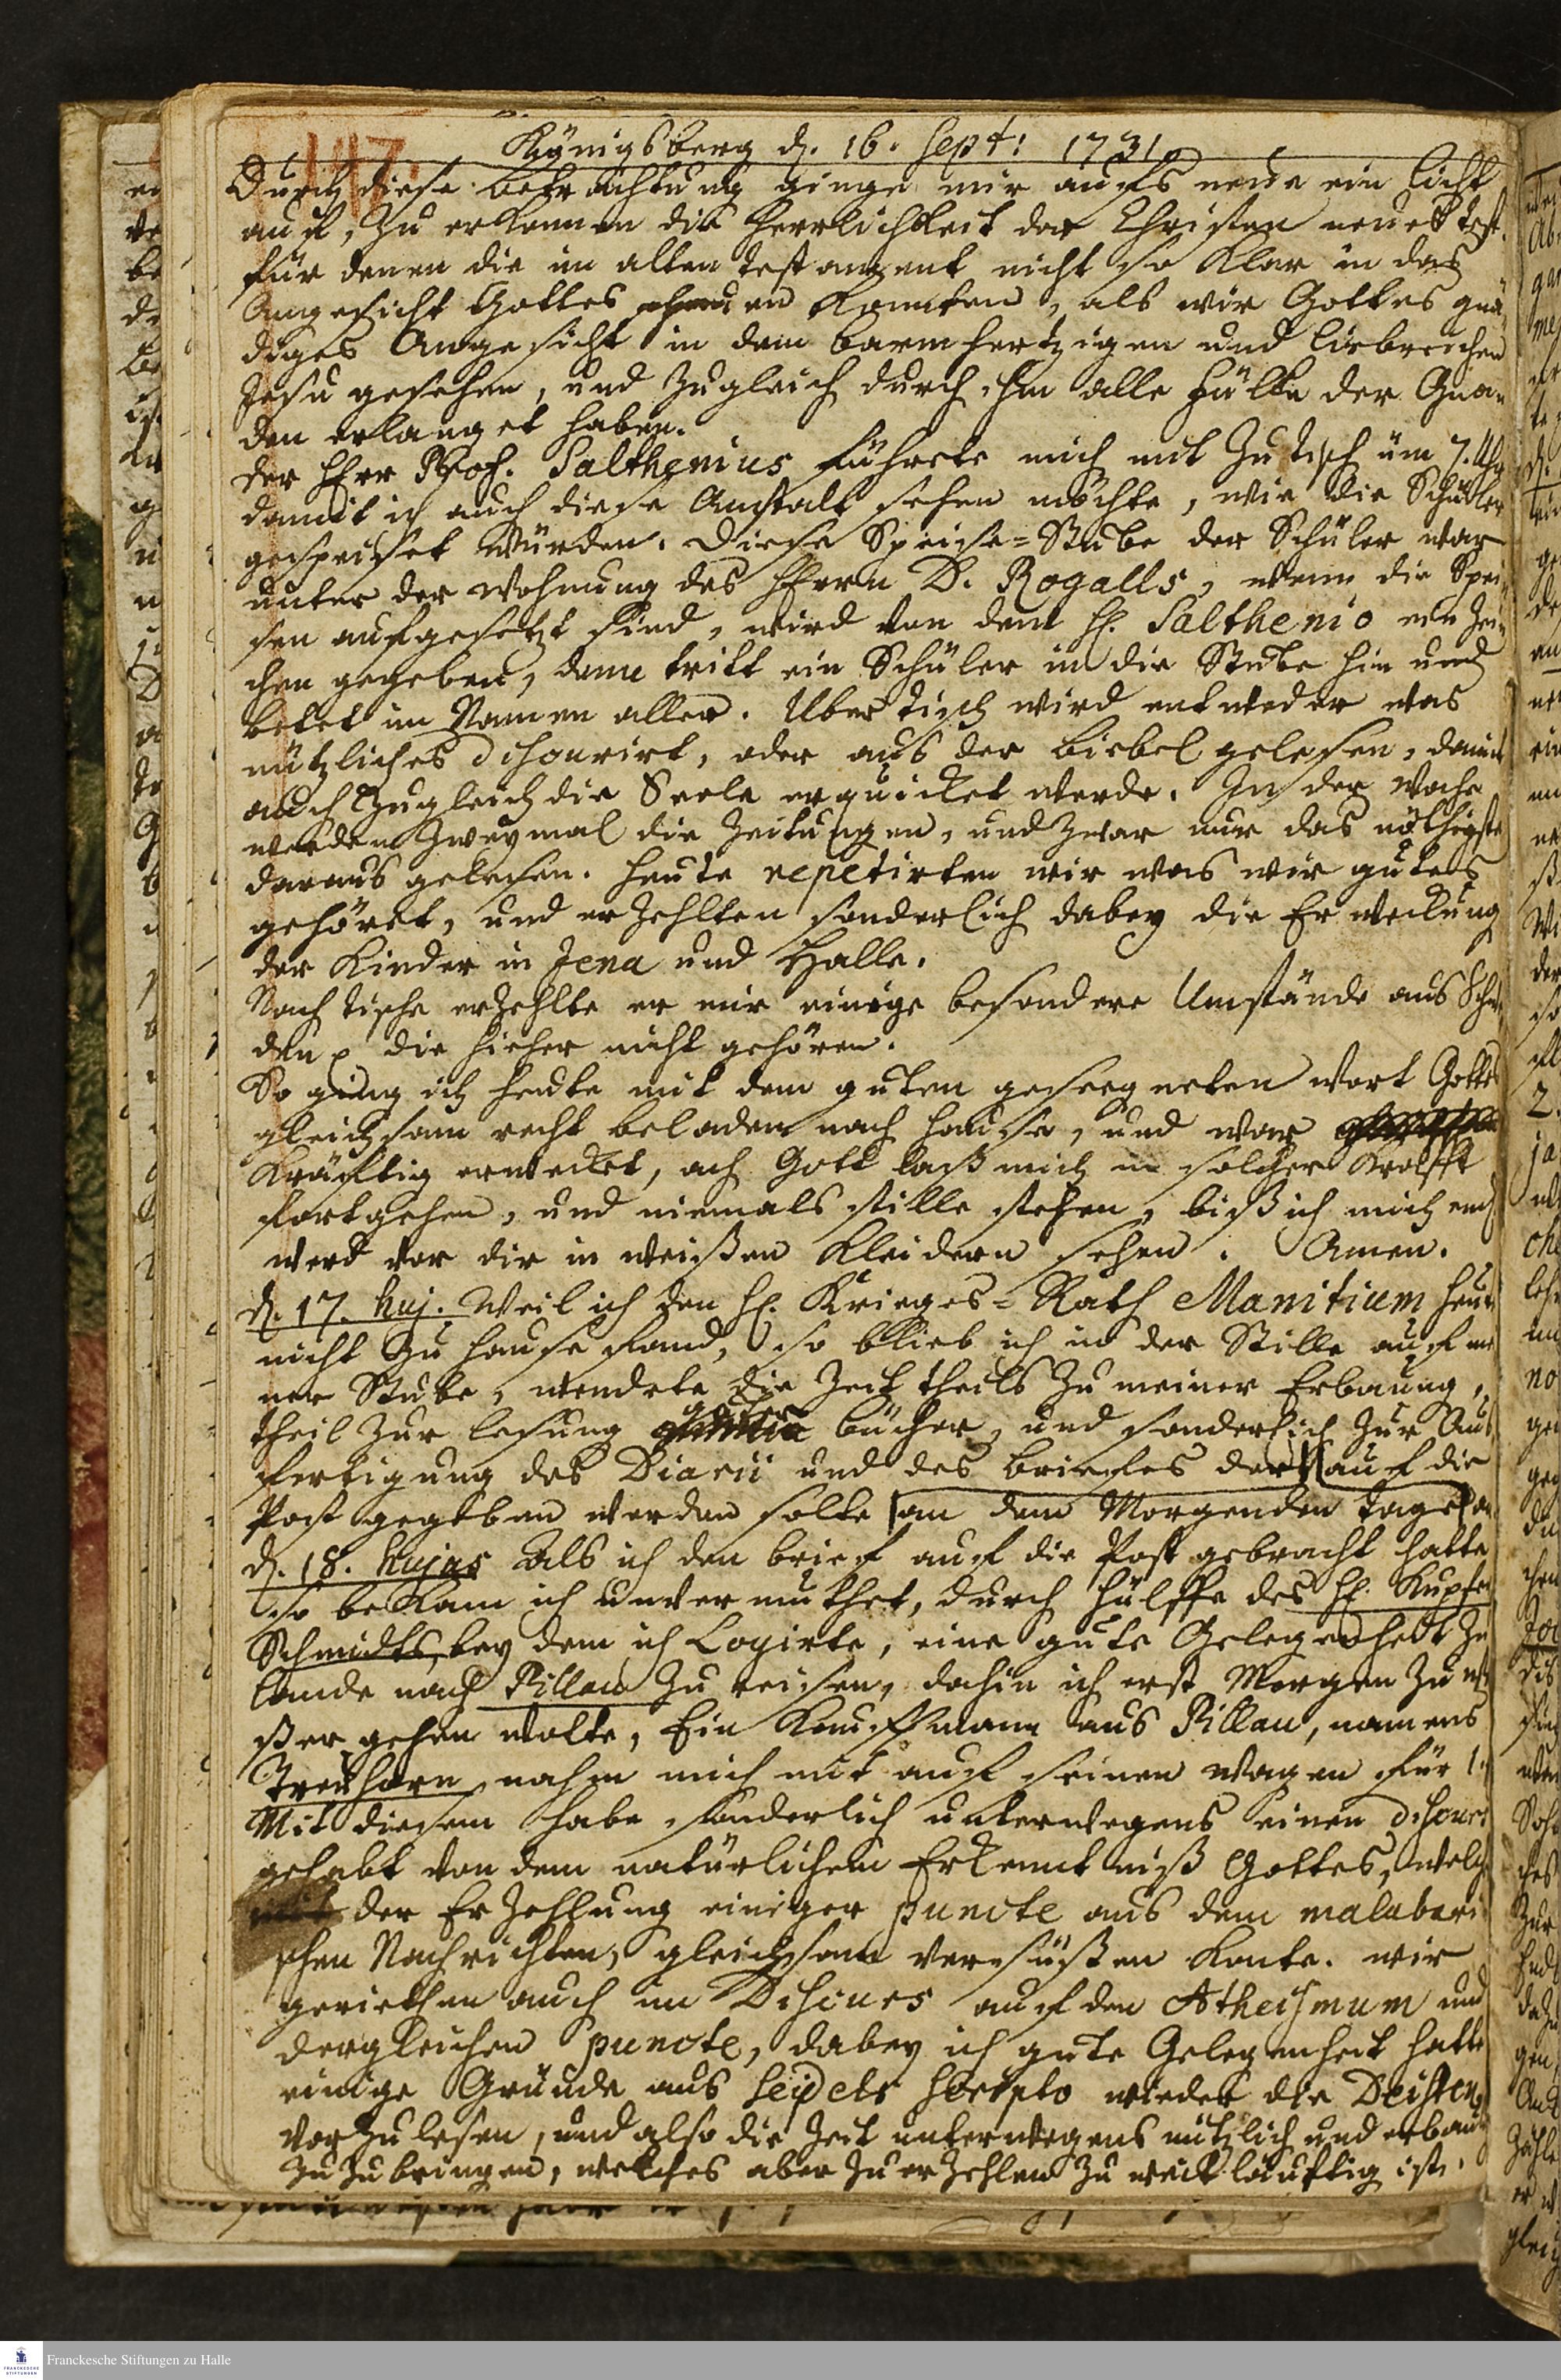 147.
Königsberg d. 16. Sept: 1731.
Durch diese betrachtung ginge mir aufs neue ein licht
auf, zu erkennen die Herrlichkeit der Christen neues test.
für denen die im alten testament nicht so klar in das
Angesicht Gottes konnten, als wir Gottes gnä-
diges Angesicht in dem barmhertzigen und liebreichen
Jesu gesehen, und zugleich durch ihn alle Fülle der Gna-
den erlanget haben.
der Herr Prof. Salthenius führete mich mit zu tisch um 7. Uhr
damit ich auch diese Anstalt sehen möchte, wie die Schüler
gespeiset würden. Diese Speise-Stube der Schüler war
unter der Wohnung des Herrn D. Rogalls, wenn die Spei-
sen aufgesetzt sind, wird von dem H. Salthenio ein Zei-
chen gegeben, dann tritt ein Schüler in die Stube hin und
betet im Namen aller. Uber tisch wird entweder was
nützliches discourirt, oder aus der biebel gelesen, damit
auch zugleich die Seele erquicket werde. In der Woche
werden zweymal die Zeitungen, und zwar nur das nöthigste
daraus gelesen. Heute repetirten wir was wir gutes
gehöret, und erzehlten sonderlich dabey die Erweckung
der Kinder in Jena und Halle.
Nach tische erzehlte er mir einige besondere Umstände aus Schwe
den die hieher nicht gehören.
So ging ich heute mit dem guten geseegneten Wort Gottes
gleichsam recht beladen nach Hause, und war
kräfftig erwecket, ach Gott laß mich in solcher Krafft
fortgehen, und niemals stille stehen, biß ich mich einst
werd vor dir in weißen Kleidern sehen. Amen.
d. 17. huj. Weil ich den H. Krieges-Rath Manitium heute
nicht zu Hause fand, so blieb ich in der Stille auf mei
ner Stube, wendete die Zeit theils zu meiner Erbauung,
theil zur lesung guter bücher, und sonderlich zur Aus
fertigung des Diarii und des briefes der auf die
Post gegeben werden solte an dem Morgenden tage
d. 18. hujus Als ich den brief auf die Post gebracht hatte
so bekam ich unvermuthet, durch Hülffe des H. Kupfer
Schmidts, bey dem ich Logirte, eine gute Gelegenheit zu
lande nach Pillau zu reisen, dahin ich erst Morgen zu wa
ßer gehen wolte, Ein Kauffmann aus Pillau, namens
Treuhorn nahm mich mit auf seinen Wagen für
Mit diesem habe sonderlich unterwegens einen discours
gehabt von dem natürlichen Erkenntniß Gottes, welch
mit der Erzehlung einiger puncte aus dem malabari
schen Nachrichten, gleichsam versüßen konte. wir
geriethen auch im Discours auf den Atheismum und
dergleichen puncte, dabey ich gute Gelegenheit hatte
einige Gründe aus Seidels wieder die Deisten
vorzulesen, und also die Zeit unterwegens nützlich und erbaul
zuzubringen, welches aber zu erzehlen zu weitläuftig ist.
Franckesche Stiftungen zu Halle